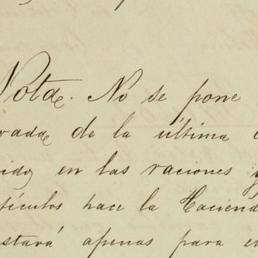 Nota. No se pone
vada de la última
ido en las raciones y
tículos hace la Haciend
stará apenas para e